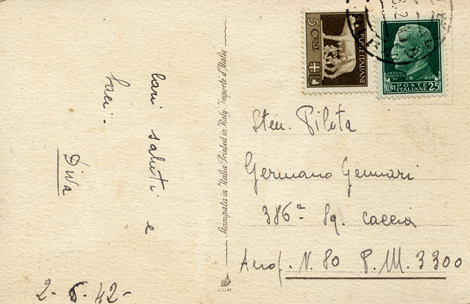 Cari saluti e
baci -
Diva
2 - 6 - 42 -
Stampata in Italia Printed in Italy Importé d'Italie
5 CENT.
POSTE ITALIANE
CENT. 25
Sten. Pilota
Germano Gennari
386ª Sq. Caccia
Aerop. N. 80 P.M. 3300